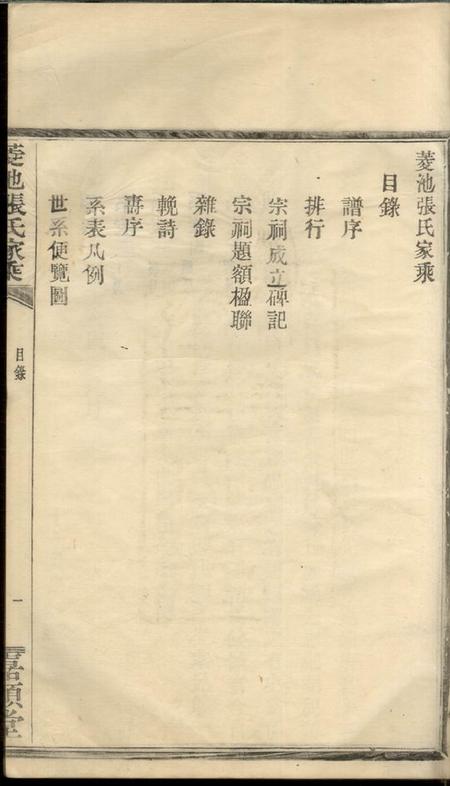 菱池張氏家乘
目錄
譜序
排行
宗祠成立碑記
宗祠題額楹聯
雜錄
輓詩
壽序
系表凡例
世系便覽圖
菱池張氏家乘
目錄
一